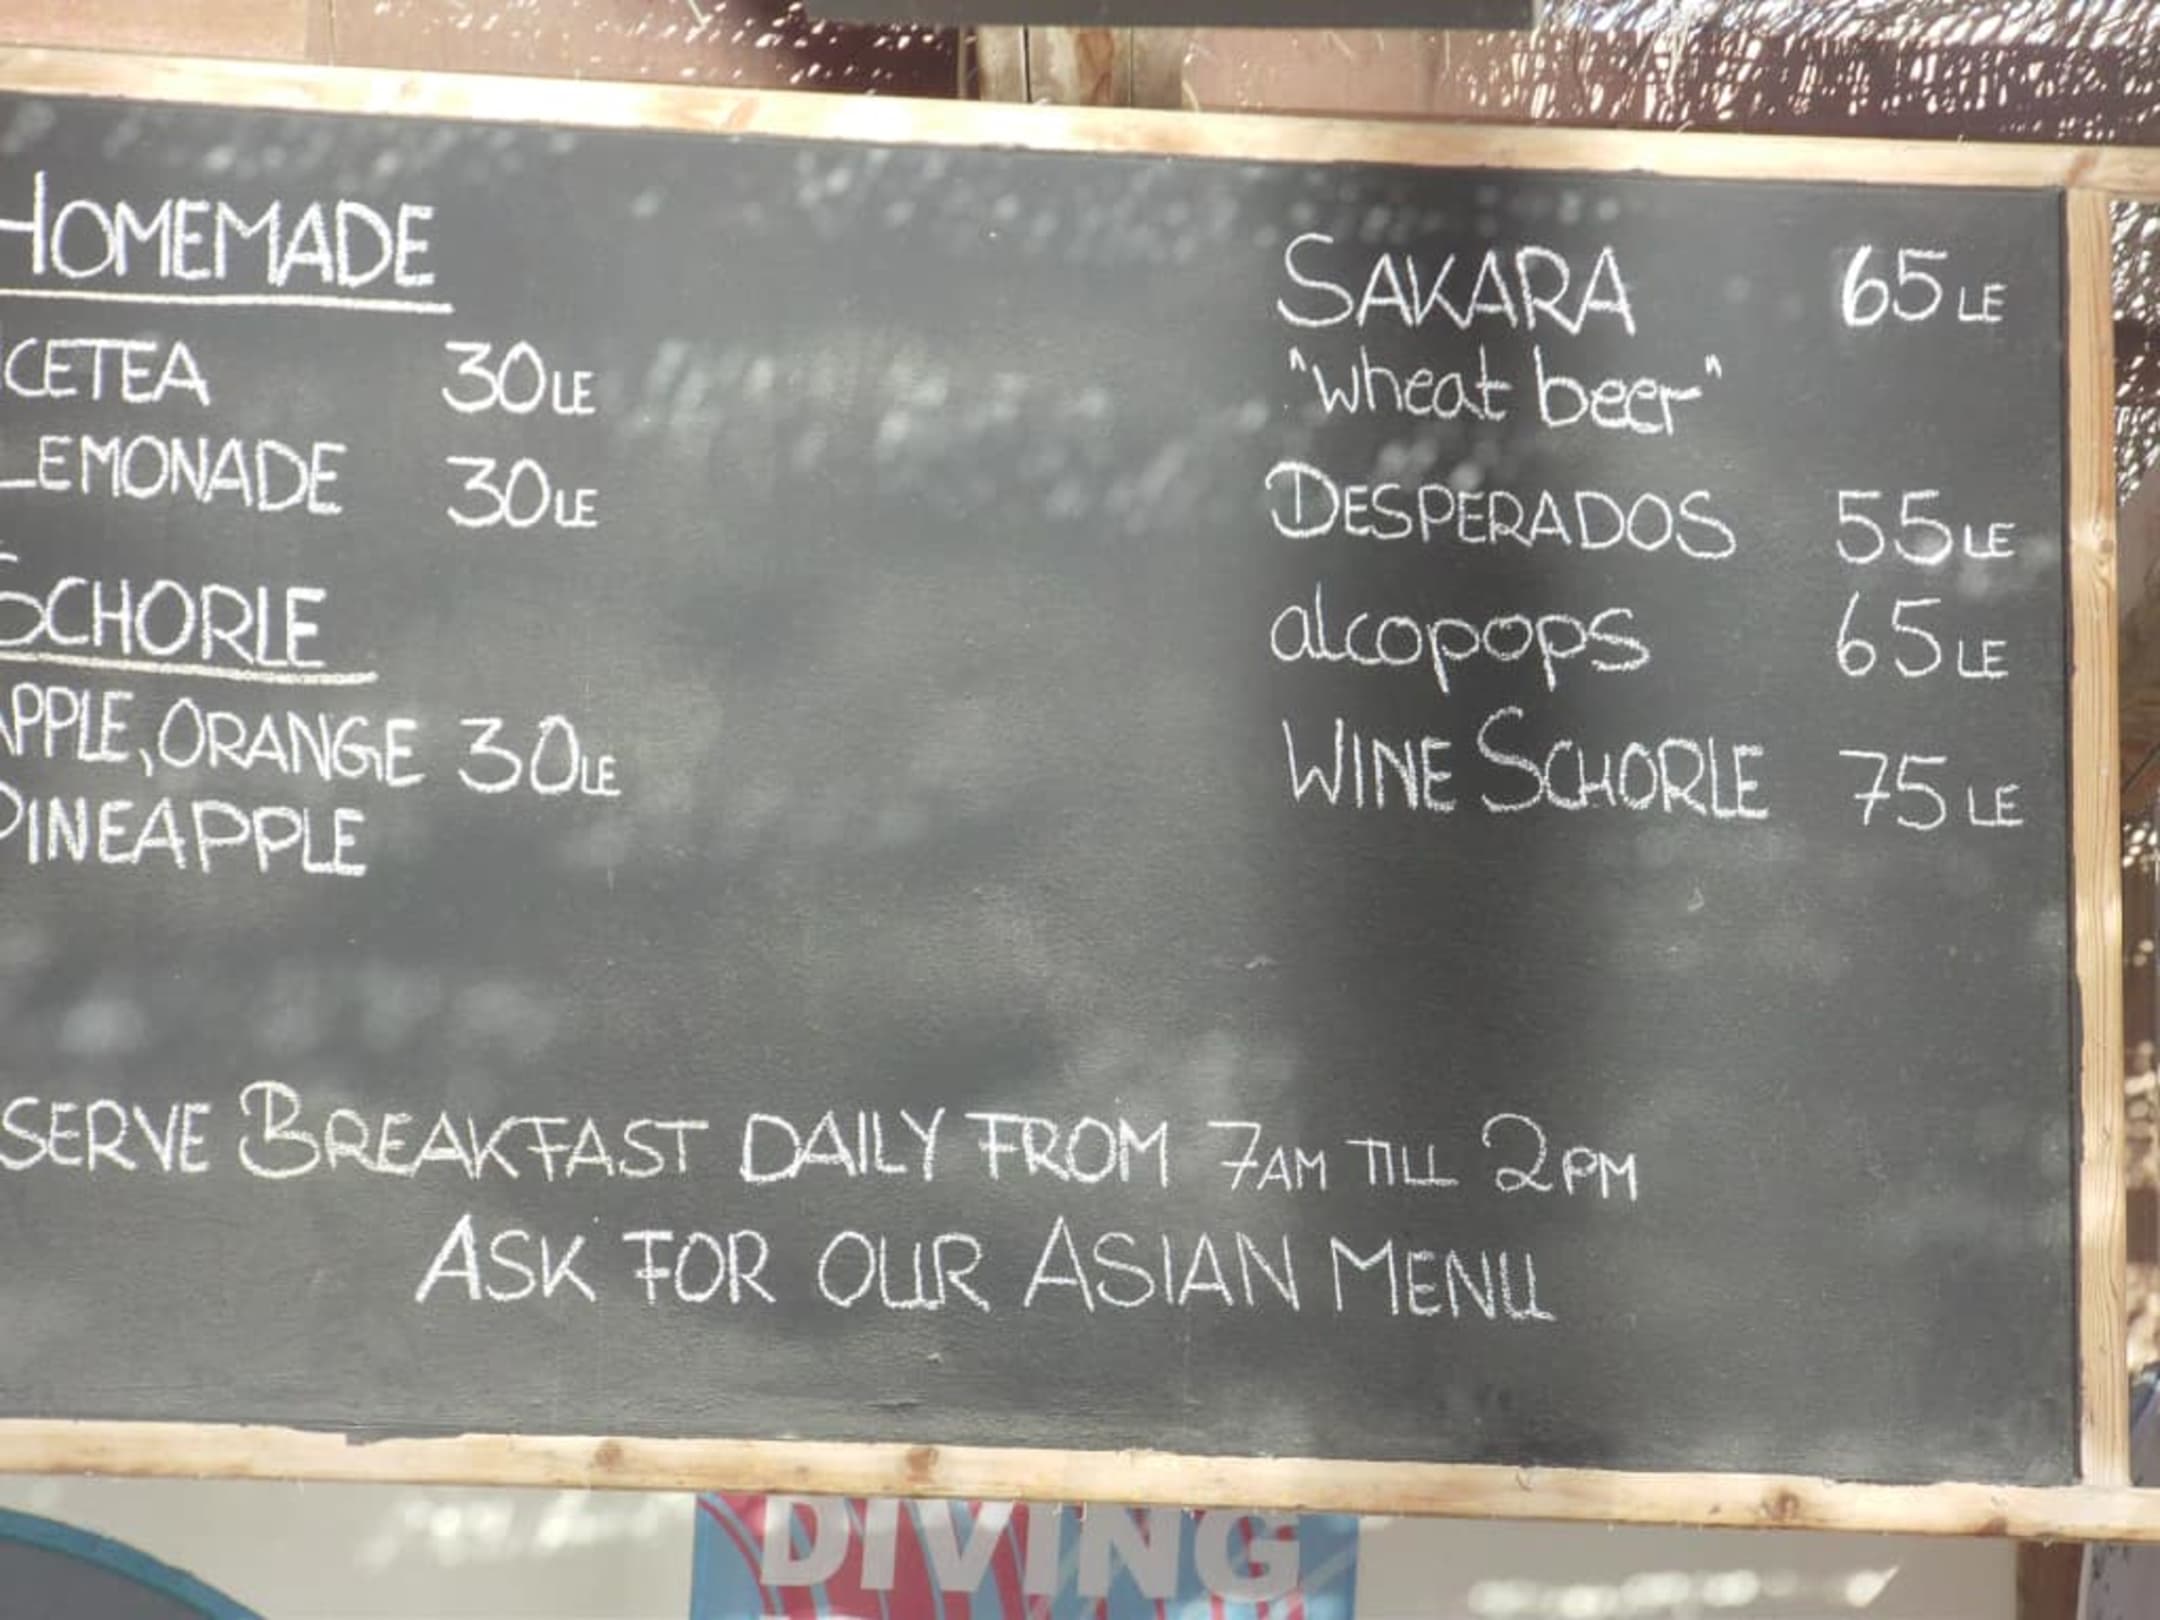 HOMEMADE
ICETEA 30LE
LEMONADE 30LE
SCHORLE
APPLE, ORANGE 30LE
PINEAPPLE
SAKARA 65LE
"wheat beer"
DESPERADOS 55LE
alcopops 65LE
WINE SCHORLE 75LE
SERVE BREAKFAST DAILY FROM 7AM TILL 2PM
ASK FOR OUR ASIAN MENU
DIVING